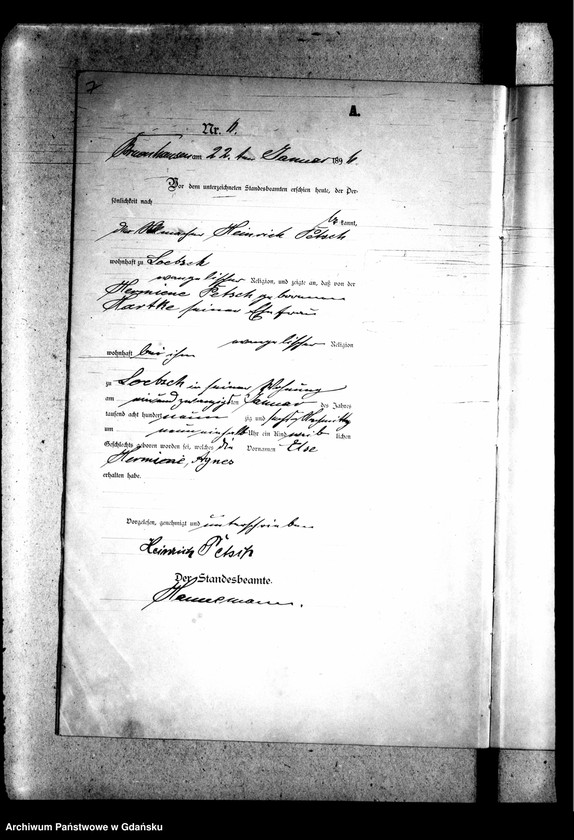 7
A.
Nr. 6.
am 22. ten Januar 1896.
Vor dem unterzeichneten Standesbeamten erschien heute, der Per-
sönlichkeit nach
kannt,
der Heinrich Petsch
wohnhaft zu Loebsch
evangelischer Religion, und zeigte an, daß von der
Hermiene Petsch geborenen
Hartke seiner Ehefrau
evangelischer Religion
wohnhaft bei ihm
zu Loebsch in seiner Wohnung
am ein und zwanzigsten Januar des Jahres
tausend acht hundert neun zig und sechs Nachmittags
um neun einhalb Uhr ein Kind weib lichen
Geschlechts geboren worden sei, welches die Vornamen Else
Hermiene, Agnes
erhalten habe.
Vorgelesen, genehmigt und unterschrieben
Heinrich Petsch
Der Standesbeamte.
Hannemann.
Archiwum Państwowe w Gdańsku